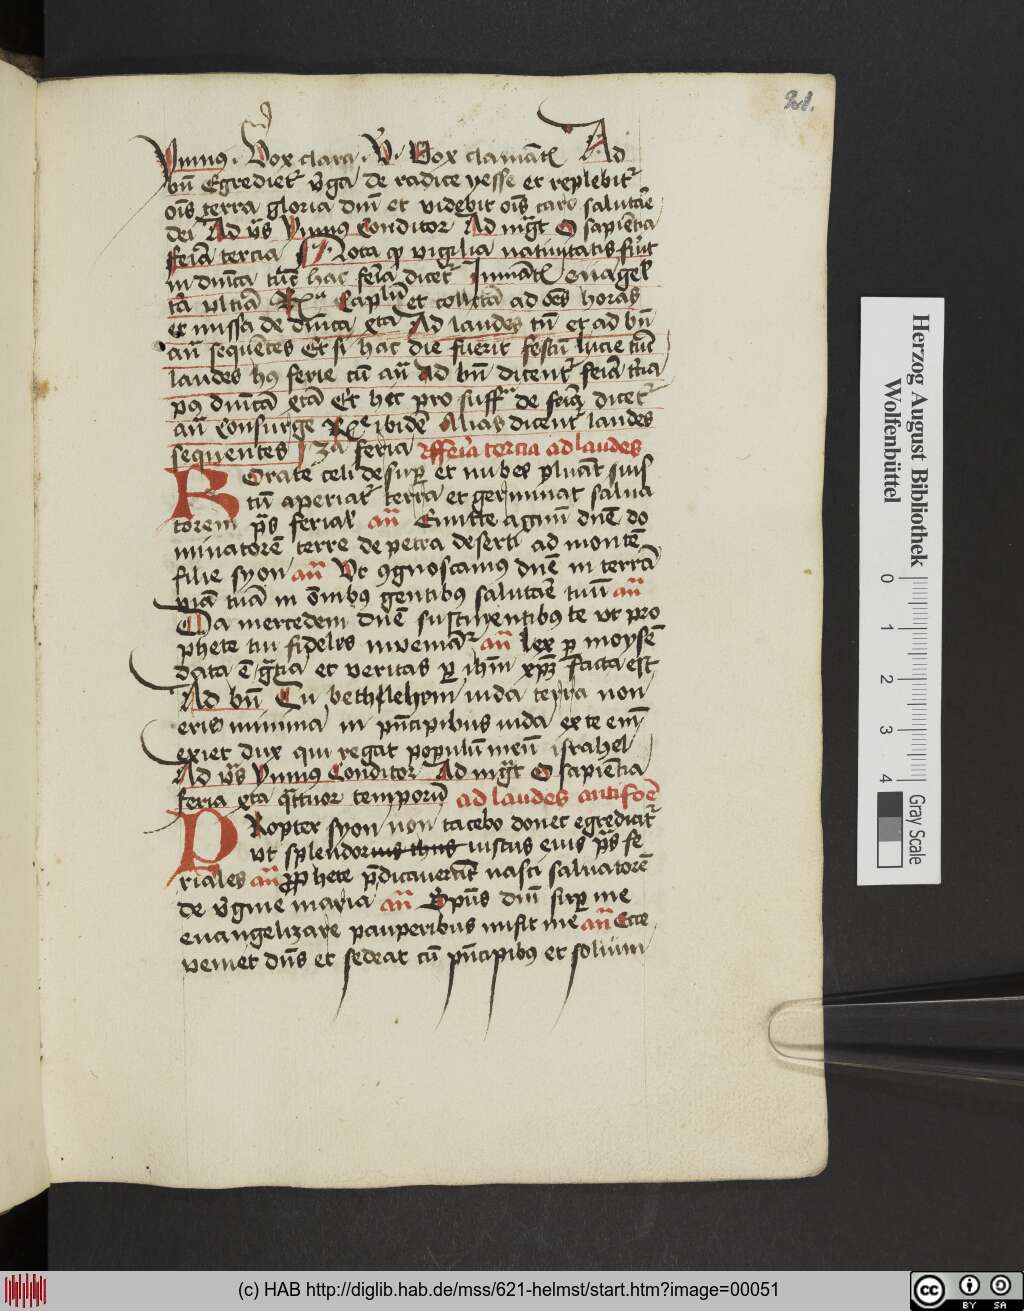 21.
Ympnus. Vox clara. V. Vox clamātis Ad
bn̄ Egrediet᷑ v̄ga de radice yesse et replebit᷑
oīs terra gloria dn̄i et videbit oīs caro salutāe
dei Ad v̄s Ympnus Conditor Ad mḡt O sapiētia
feria tercia Nota qꝫ vigilia natiuitatis
in dn̄ica tūc hac feria dicet᷑
Caplm̄ et collctā ad oēs horas
et missa de dn̄ica Ad laudes tn̄ et ad bn̄
an̄ sequētes Et si hac die fuerit festū lucie tūc
laudes hꝰ ferie cū an̄ Ad bn̄ dicent᷑ feria t᷑cia
pꝰ dn̄icā Et hec pro suff de dicet᷑
an̄ Consurge ibidē Alias dicent᷑ laudes
sequentes feria feria tercia ad laudes
ROrate celi desup̱ et nubes pluāt iust
tū aperiat᷑ terra et germinat salua
torem p̄s ferial᷑ an̄ Emitte agnū dn̄e do
minatorē terre de petra deserti ad montē
filie syon an̄ Vt ꝯgnoscamus dn̄e in terra
viā tuā in om̄ibꝰ gentibꝰ salutāe tuū an̄
Da mercedem dn̄e sustinentibus te vt pro
phete tui fideles inueniāt᷑ an̄ lex p̱ moysē
data ē gr̄tia et veritas p̱ ihm̄ xpm̄ facta est
Ad bn̄ Tu bethlehem iuda terra non
eris minima in pn̄cipibus iuda ex te em̄
exiet dux qui regat populū meū israhel
Ad v̄s Ympnus Conditor Ad mḡt O sapiētia
feria qtuor temporū ad laudes antifoē
PRopter syon non tacebo donec egrediat᷑
vt splendor ius thus iustus eius p̄s fe
riales an̄ Prophete p̄dicauerūt nasci saluatorē
de v̄gine maria an̄ Sp̄us dn̄i sup̱ me
euangelizare pauperibus misit me an̄ Ecce
veniet dn̄s et sedeat cū pn̄cipibꝰ et solium
Herzog August Bibliothek
Wolfenbüttel
0 1 2 3 4
Gray Scale
(c) HAB http://diglib.hab.de/mss/621-helmst/start.htm?image=00051
cc BY SA